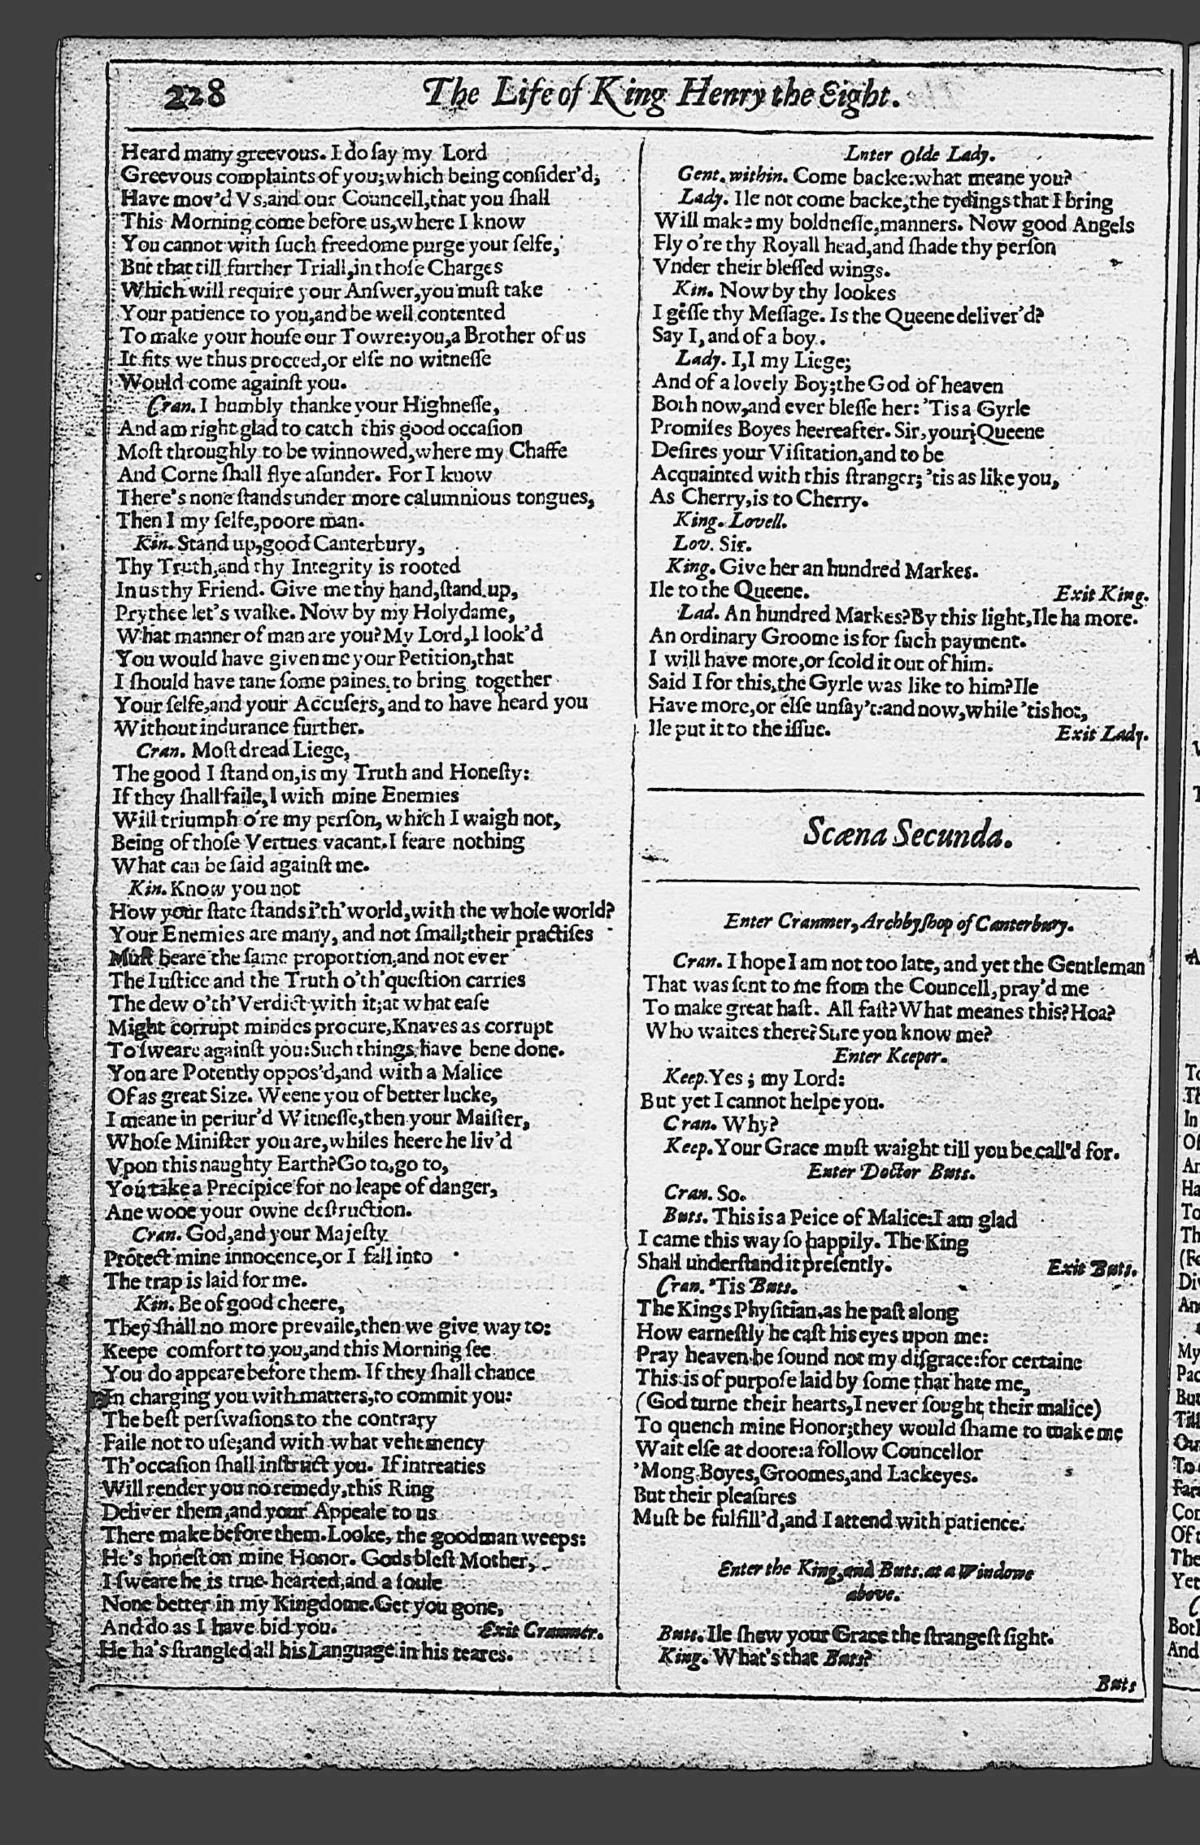 228
The Life of King Henry the Eight.
Heard many greevous. I do ſay my Lord
Greevous complaints of you; which being conſider'd,
Have mov'd Vs, and our Councell, that you ſhall
This Morning come before us, where I know
You cannot with ſuch freedome purge your ſelfe,
But that till further Triall, in thoſe Charges
Which will require your Anſwer, you muſt take
Your patience to you, and be well contented
To make your houſe our Towre: you, a Brother of us
It fits we thus proceed, or elſe no witneſſe
Would come againſt you.
Cran. I humbly thanke your Highneſſe,
And am right glad to catch this good occaſion
Moſt throughly to be winnowed, where my Chaffe
And Corne ſhall flye aſunder. For I know
There's none ſtands under more calumnious tongues,
Then I my ſelfe, poore man.
Kin. Stand up, good Canterbury,
Thy Truth, and thy Integrity is rooted
In us thy Friend. Give me thy hand, ſtand up,
Prythee let's walke. Now by my Holydame,
What manner of man are you? My Lord, I look'd
You would have given me your Petition, that
I ſhould have tane ſome paines, to bring together
Your ſelfe, and your Accuſers, and to have heard you
Without indurance further.
Cran. Moſt dread Liege,
The good I ſtand on, is my Truth and Honeſty:
If they ſhall faile, I with mine Enemies
Will triumph o're my perſon, which I waigh not,
Being of thoſe Vertues vacant. I feare nothing
What can be ſaid againſt me.
Kin. Know you not
How your ſtate ſtands i'th'world, with the whole world?
Your Enemies are many, and not ſmall; their practiſes
Muſt beare the ſame proportion, and not ever
The Iuſtice and the Truth o'th'queſtion carries
The dew o'th'Verdict with it; at what eaſe
Might corrupt mindes procure, Knaves as corrupt
To ſweare againſt you: Such things have bene done.
You are Potently oppos'd, and with a Malice
Of as great Size. Weene you of better lucke,
I meane in periur'd Witneſſe, then your Maiſter,
Whoſe Miniſter you are, whiles heere he liv'd
Vpon this naughty Earth? Go to, go to,
You take a Precipice for no leape of danger,
Ane wooe your owne deſtruction.
Cran. God, and your Majeſty
Protect mine innocence, or I fall into
The trap is laid for me.
Kin. Be of good cheere,
They ſhall no more prevaile, then we give way to:
Keepe comfort to you, and this Morning ſee
You do appeare before them. If they ſhall chance
In charging you with matters, to commit you:
The beſt perſwaſions to the contrary
Faile not to uſe, and with what vehemency
Th'occaſion ſhall inſtruct you. If intreaties
Will render you no remedy, this Ring
Deliver them, and your Appeale to us
There make before them. Looke, the goodman weeps:
He's honeſt on mine Honor. Gods bleſt Mother,
I ſweare he is true-hearted, and a ſoule
None better in my Kingdome. Get you gone,
And do as I have bid you. Exit Cranmer.
He ha's ſtrangled all his Language in his teares.
Enter Olde Lady.
Gent. within. Come backe: what meane you?
Lady. Ile not come backe, the tydings that I bring
Will make my boldneſſe, manners. Now good Angels
Fly o're thy Royall head, and ſhade thy perſon
Vnder their bleſſed wings.
Kin. Now by thy lookes
I geſſe thy Meſſage. Is the Queene deliver'd?
Say I, and of a boy.
Lady. I, I my Liege;
And of a lovely Boy; the God of heaven
Both now, and ever bleſſe her: 'Tis a Gyrle
Promiſes Boyes heereafter. Sir, your Queene
Deſires your Viſitation, and to be
Acquainted with this ſtranger; 'tis as like you,
As Cherry, is to Cherry.
King. Lovell.
Lov. Sir.
King. Give her an hundred Markes.
Ile to the Queene. Exit King.
Lad. An hundred Markes? By this light, Ile ha more.
An ordinary Groome is for ſuch payment.
I will have more, or ſcold it out of him.
Said I for this, the Gyrle was like to him? Ile
Have more, or elſe unſay't: and now, while 'tis hot,
Ile put it to the iſſue. Exit Lady.
Scæna Secunda.
Enter Cranmer, Archbyſhop of Canterbury.
Cran. I hope I am not too late, and yet the Gentleman
That was ſent to me from the Councell, pray'd me
To make great haſt. All faſt? What meanes this? Hoa?
Who waites there? Sure you know me?
Enter Keeper.
Keep. Yes; my Lord:
But yet I cannot helpe you.
Cran. Why?
Keep. Your Grace muſt waight till you be call'd for.
Enter Doctor Buts.
Cran. So.
Buts. This is a Peice of Malice: I am glad
I came this way ſo happily. The King
Shall underſtand it preſently. Exit Buts.
Cran. 'Tis Buts.
The Kings Phyſitian, as he paſt along
How earneſtly he caſt his eyes upon me:
Pray heaven he ſound not my diſgrace: for certaine
This is of purpoſe laid by ſome that hate me,
(God turne their hearts, I never ſought their malice)
To quench mine Honor; they would ſhame to make me
Wait elſe at doore: a fellow Councellor
'Mong Boyes, Groomes, and Lackeyes.
But their pleaſures
Muſt be fulfill'd, and I attend with patience.
Enter the King, and Buts. at a Windowe
above.
Buts. Ile ſhew your Grace the ſtrangeſt ſight.
King. What's that Buts?
Buts